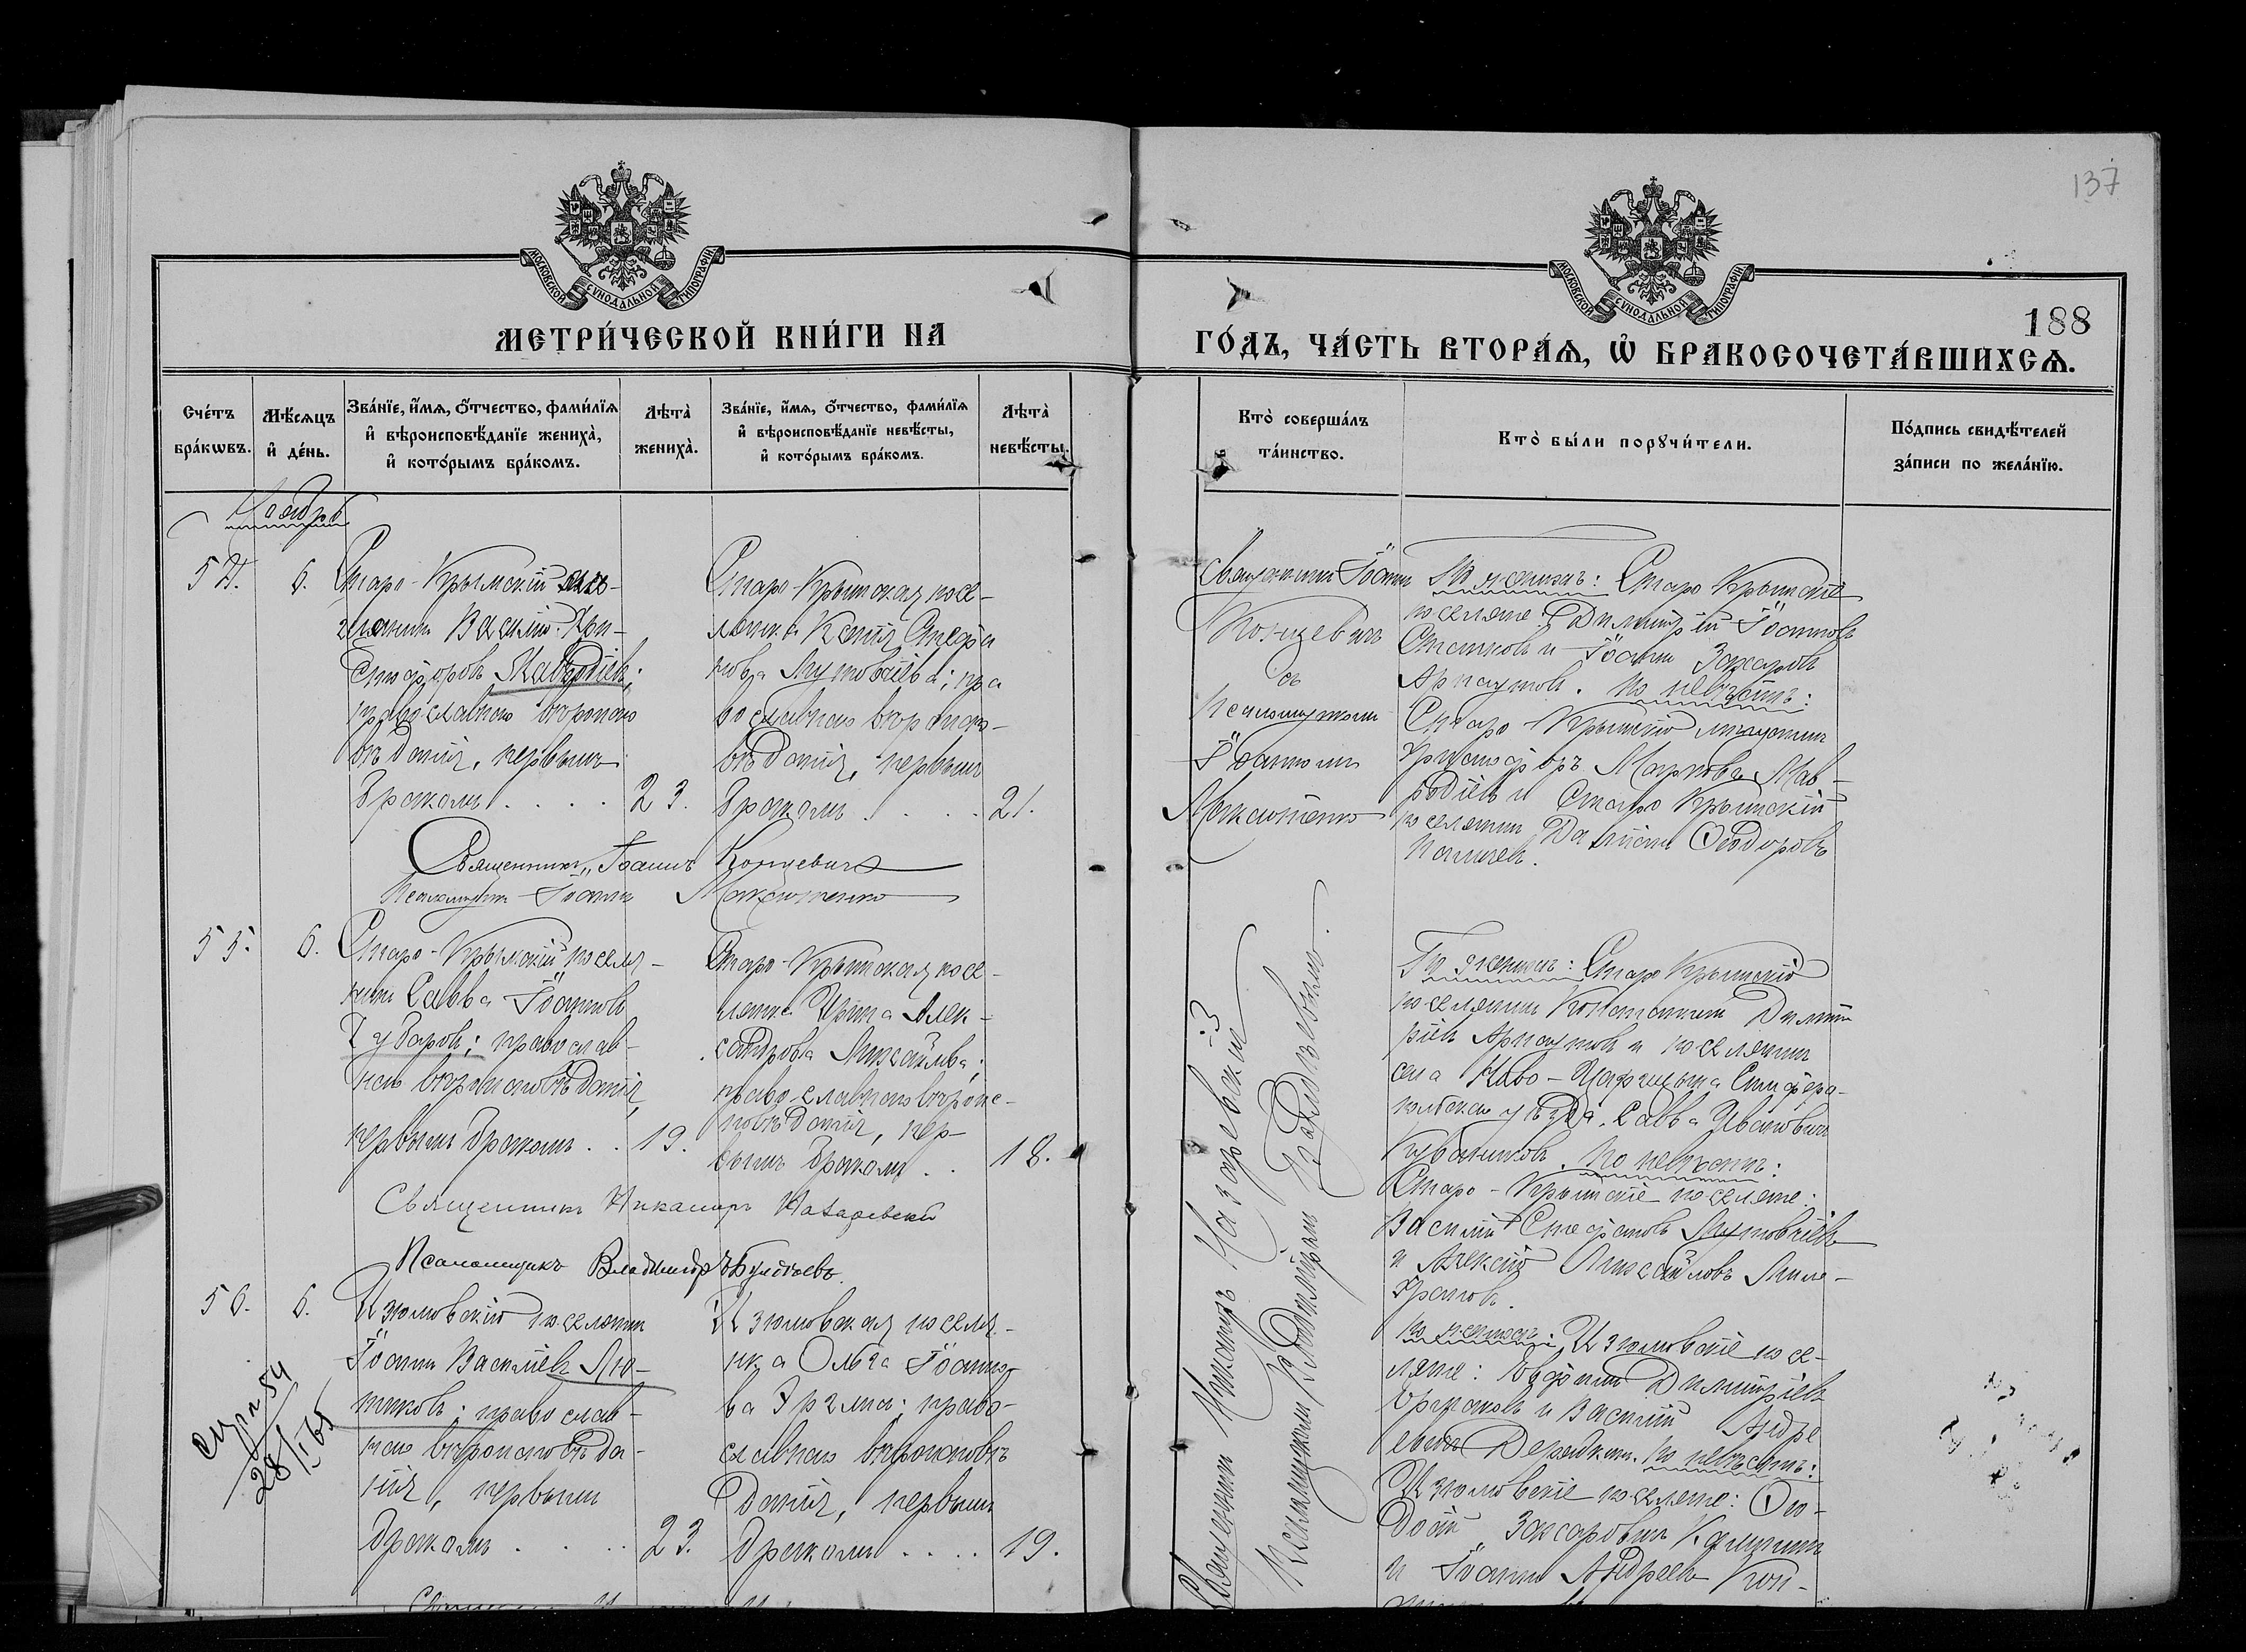 137
МОСКОВСКОЙ СѴНОДАЛЬНОЙ ТИПОГРАФІИ
МОСКОВСКОЙ СѴНОДАЛЬНОЙ ТИПОГРАФІИ
188
МЕТРИ́ЧЕСКОЙ КНИ́ГИ НА
ГО́ДЪ, ЧА́СТЬ ВТОРА́Ѧ, Ѽ БРАКОСОЧЕТА́ВШИХСѦ.
Сче́тъ бра́кѡвъ.
Мѣ́сѧцъ и҆ де́нь.
Зва́нїе, и҆́мѧ, ѻ҆́тчество, фами́лїѧ
и҆ вѣроисповѣ́данїе жениха̀,
и҆ кото́рымъ бра́комъ.
Лѣта̀ жениха̀.
Зва́нїе, и҆́мѧ, ѻ҆́тчество, фами́лїѧ
и҆ вѣроисповѣ́данїе невѣ́сты,
и҆ кото́рымъ бра́комъ.
Лѣта̀ невѣ́сты.
Кто̀ соверша́лъ
та́инство.
Кто̀ бы́ли порꙋчи́тели.
По́дпись свидѣ́телей
за́писи по жела́нїю.
Ноябрь
54.
6.
Старо-Крымскій
Василій Хри-
стофоровъ Мавродіевъ;
православнаго вѣроиспо
вѣданія, первымъ
бракомъ . . . .
23.
Старо-Крымская посе-
лянка Ксенія Стефа
нова Мутовчіева; пра
вославнаго вѣроиспо-
вѣданія, первымъ
бракомъ . . . .
21.
Священникъ Іоаннъ
Концевичъ
съ
Псаломщикомъ
Іоанномъ
Максютенко
По женихѣ: Старо Крымскіе
поселяне: Димитрій Іоанновъ
Станковъ и Іоаннъ Захаровъ
Арнаутовъ. по невѣстѣ:
Старо-Крымскій мѣщанинъ
Христофоръ Марковъ Мав-
родіевъ и Старо Крымскій
поселянинъ Даміанъ Ѳеодоровъ
Священникъ Іоаннъ Концевичъ
Псаломщикъ Іоаннъ Максютенко
55.
6.
Старо-Крымскій поселя-
нинъ Савва Іоанновъ
Чубаровъ; православ-
наго вѣроисповѣданія,
первымъ бракомъ . .
19.
Старо-Крымская посе-
лянка Ирина Алек-
сандрова Михайлова;
православнаго вѣроис-
повѣданія, пер-
вымъ бракомъ . .
18.
Священникъ Никаноръ Назаревскій
По женихѣ: Старо Крымскій
поселянинъ Константинъ Димит
ріевъ Арнаутовъ и поселянинъ
села Ново-Царицына Симферо-
польскаго уѣзда Савва Ивановичъ
по невѣстѣ:
Старо-Крымскіе поселяне:
Василій Стефановъ Мутовчіевъ
и Алексій Михайловъ
Священникъ Никаноръ Назаревскій
Псаломщикъ Владиміръ
56.
6.
Изюмовскій поселянинъ
Іоаннъ Василіевъ Лю-
тиковъ; православ-
наго вѣроисповѣда-
нія, первымъ
бракомъ . . . .
23.
Изюмовская поселя-
нка Ольга Іоанно
ва право-
славнаго вѣроисповѣ
данія, первымъ
бракомъ . . . .
19.
По женихѣ: Изюмовскіе посе-
ляне: Димитріевъ
и Василій Андре
по невѣстѣ:
Изюмовскіе поселяне: Ѳео-
досій Захаровичъ
и Іоаннъ Андреевъ